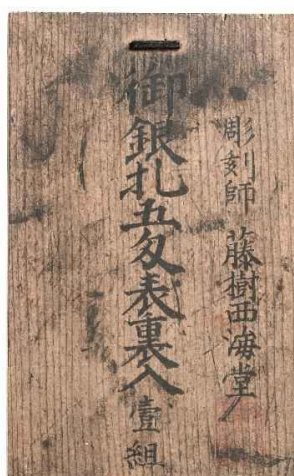 彫刻師 藤樹西海堂
御銀札五匁表裏入 壹組